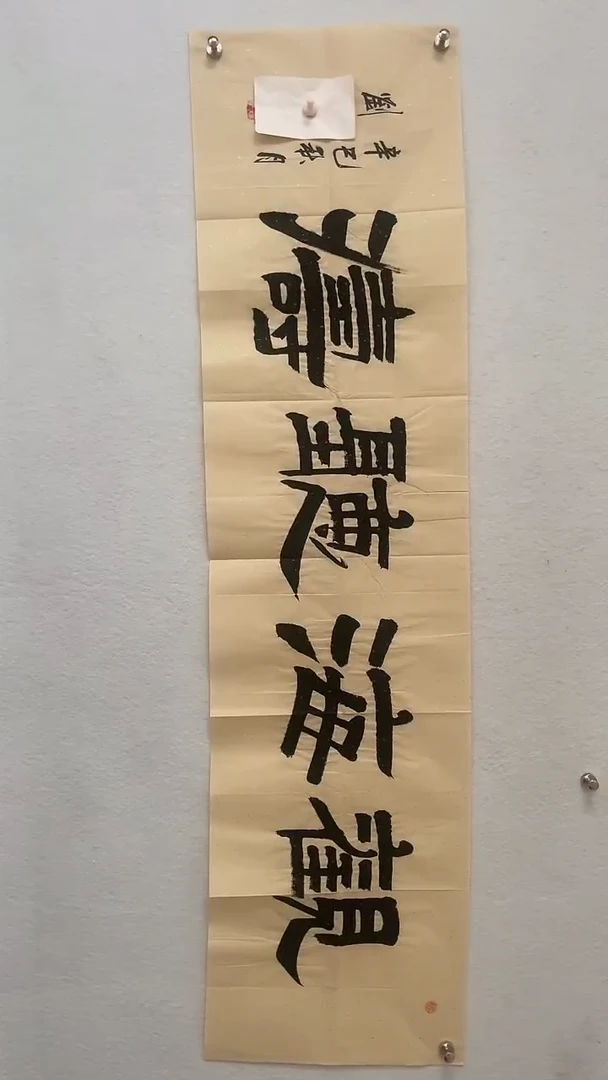 觀海聽濤
辛巳秋月
劉